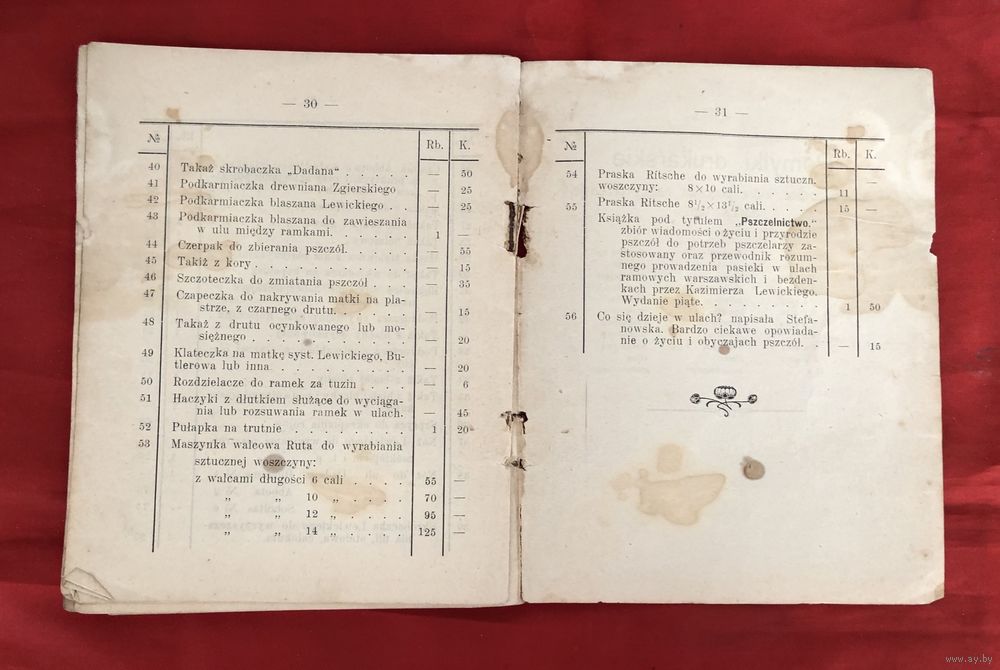 — 30 —
№ Rb. K.
40 Takaż skrobaczka „Dadana“ . . . . . — 50
41 Podkarmiaczka drewniana Zgierskiego — 25
42 Podkarmiaczka blaszana Lewickiego . . — 25
43 Podkarmiaczka blaszana do zawieszania
w ulu między ramkami. . . . . . 1 —
44 Czerpak do zbierania pszczół. . . . . — 55
45 Takiż z kory. . . . . . . . . . — 15
46 Szczoteczka do zmiatania pszczół . . . — 35
47 Czapeczka do nakrywania matki na pla-
strze, z czarnego drutu. . . . . . — 15
48 Takaż z drutu ocynkowanego lub mo-
siężnego . . . . . . . . . . — 20
49 Klateczka na matkę syst. Lewickiego, Bu-
tlerowa lub inna . . . . . . . . — 20
50 Rozdzielacze do ramek za tuzin . . . . — 6
51 Haczyki z dłutkiem służące do wyciąga-
nia lub rozsuwania ramek w ulach. — 45
52 Pułapka na trutnie . . . . . . . . 1 20
53 Maszynka walcowa Ruta do wyrabiania
sztucznej woszczyny:
z walcami długości 6 cali . . . . . 55 —
„ „ 10 „ . . . . . 70 —
„ „ 12 „ . . . . . 95 —
„ „ 14 „ . . . . . 125 —
— 31 —
№ Rb. K.
54 Praska Ritsche do wyrabiania sztuczn.
woszczyny: 8×10 cali. . . . . . . 11 —
55 Praska Ritsche 8¹/₂×13¹/₂ cali. . . . . 15 —
Książka pod tytułem „Pszczelnictwo.“
zbiór wiadomości o życiu i przyrodzie
pszczół do potrzeb pszczelarzy za-
stosowany oraz przewodnik rozum-
nego prowadzenia pasieki w ulach
ramowych warszawskich i bezden-
kach przez Kazimierza Lewickiego.
Wydanie piąte. . . . . . . . . 1 50
56 Co się dzieje w ulach? napisała Stefa-
nowska. Bardzo ciekawe opowiada-
nie o życiu i obyczajach pszczół. . — 15
www.ay.by